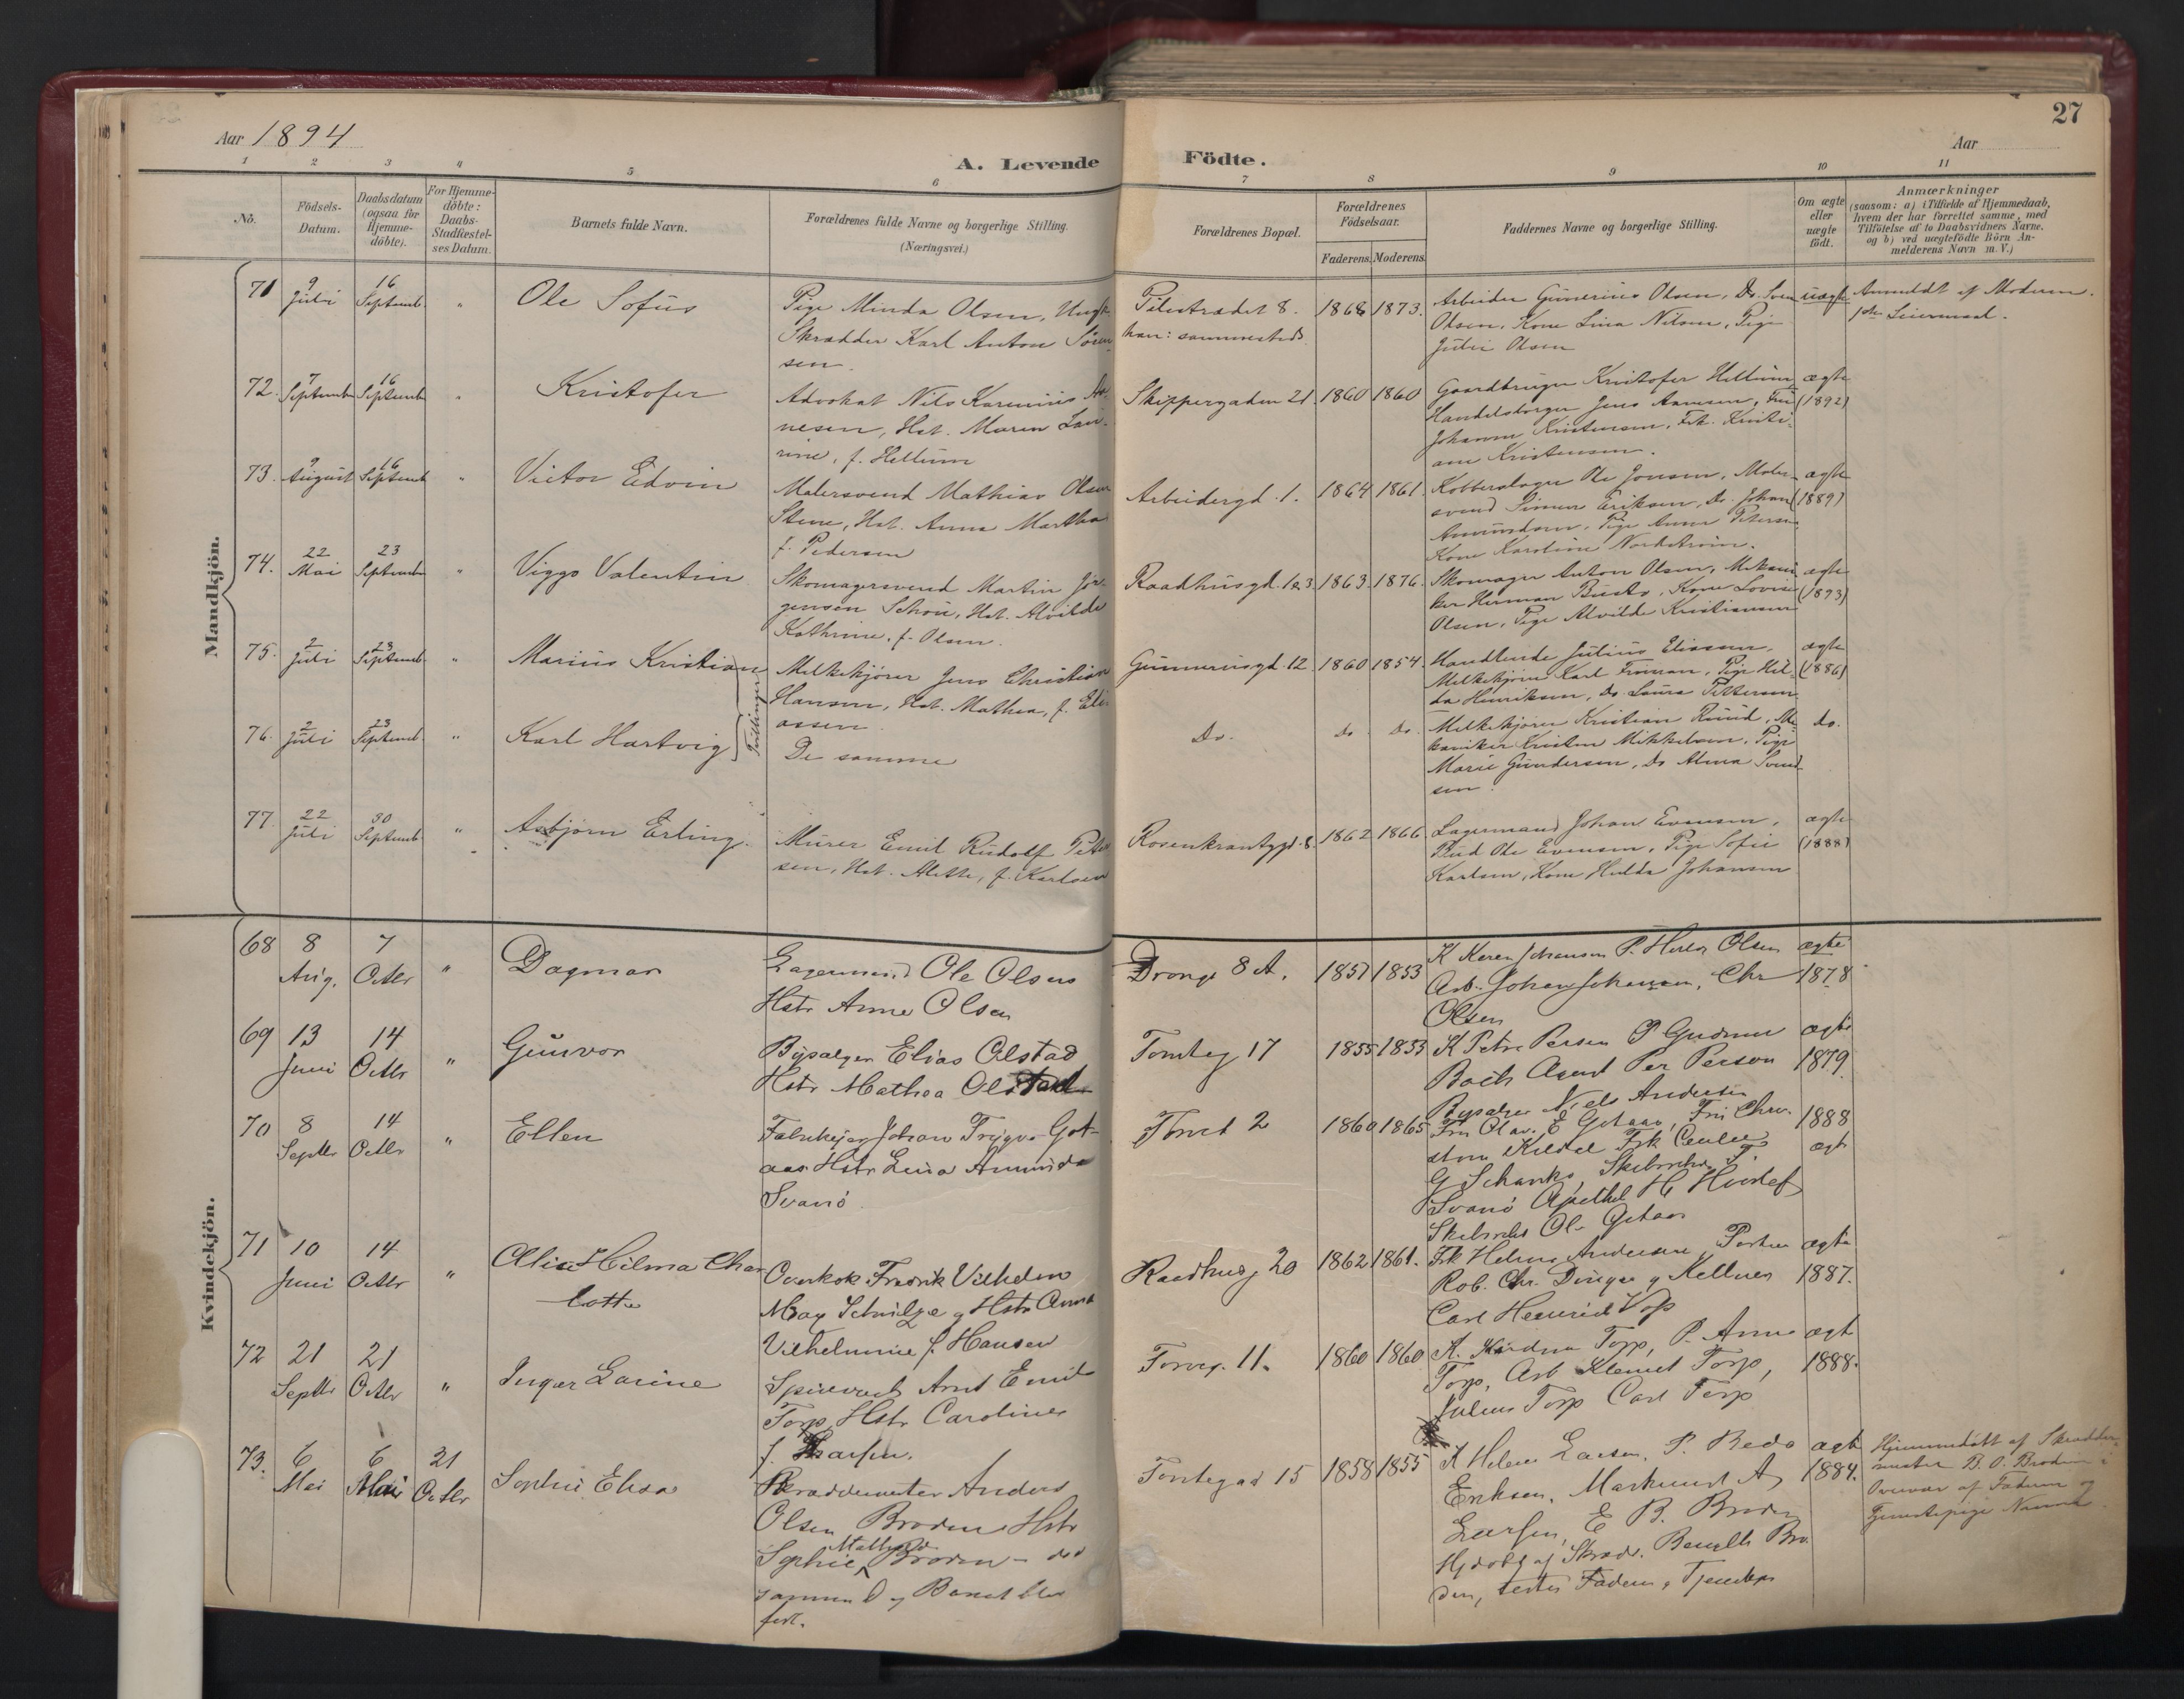 27
Aar 1894
Aar
A. Levende Födte.
1 2 3 4 5 6 7 8 9 10 11
No.
Födsels-Datum.
Daabsdatum (ogsaa for Hjemme-döbte).
For Hjemme-döbte: Daabs-Stadfæstel-ses Datum.
Barnets fulde Navn.
Forældrenes fulde Navne og borgerlige Stilling.
(Næringsvei.)
Forældrenes Bopæl.
Forældrenes Födselsaar.
Faderens. Moderens.
Faddernes Navne og borgerlige Stilling.
Om ægte eller uægte födt.
Anmærkninger
(saasom: a) i Tilfælde af Hjemmedaab, hvem der har forrettet samme, med Tilföielse af to Daabsvidners Navne, og b) ved uægtefödte Börn An-melderens Navn m. V.)
Mandkjön.
71 9 Juli 16 Septemb. " Ole Sofus
Pige Minda Olsen, Ungk.
Skrædder Karl Anton Sören-
sen.
Pilestrædet 8.
han: sammesteds
1868 1873.
Arbeider Gunerius Olsen, Do. Sven
Olsen, Kone Lina Nilsen, Pige
Julie Olsen
uægte
Anmeldt af Moderen.
1ste Leiermaal.
72. 7 Septembr 16 Septemb " Kristofer
Advokat Nils Karenius Ar-
nesen, Hst. Maren Lau-
rine, f. Hellum
Skippergaden 21. 1860 1860
Gaardbruger Kristofer Hellum,
Handelsborger Jens Aamesen, Fru
Johanne Kristensen, Frk. Kristi-
ane Kristensen.
ægte
(1892)
73. 9 August 16 Septemb " Victor Edvin
Malersvend Mathias Olsen
Stene, Hst. Anna Martha
f. Pedersen
Arbeidergd. 1. 1864 1861.
Kobberslager Ole Jonsen, Maler-
svend Simen Eriksen, Do. Johan
Amundsen, Pige Anna Petersen
Kone Karoline Nordström.
ægte
(1889)
74. 22 Mai 23 Septembr " Viggo Valentin
Skomagersvend Martin Jör-
gensen Schou, Hst. Alvilde
Kathrine, f. Olsen.
Raadhusgd. 1 1863. 1876.
Skomager Anton Olsen, Mekani-
ker Herman Busto, Kone Lovise
Olsen, Pige Alvilde Kristiansen
ægte
(1893)
75. 2 Juli 23 Septemb. " Marius Kristian
Melkekjörer Jens Christian
Hansen, Hst. Mathea, f. Eli-
assen.
Gunnerusgd. 12. 1860 1854.
Handlende Julius Eliassen,
Melkekjörer Karl Froman, Pige Hil-
da Henriksen, Do Laura Pettersen
ægte
(1886)
Tvillinger
76. 2 Juli 23 Septemb. " Karl Hartvig
De samme
Do. do Do.
Melkekjörer Kristian Ruud, Me-
kaniker Kristen Mikkelsen, Pige
Marie Gundersen, Do Alma Svend-
sen.
do.
77. 22 Juli 30 Septemb. " Asbjörn Erling.
Murer Emil Rudolf Peter-
sen, Hst. Alette, f. Karlsen
Rosenkrantzgd. 8. 1862 1866.
Lagermand Johan Evensen,
Bud Ole Evensen, Pige Sofie
Karlsen, Kone Hulda Johansen
ægte
(1888)
Kvindekjön.
68 8 Aug. 7 Octbr " Dagmar
Lagermand Ole Olsen
Hstr Anne Olsen
Drong 8 A. 1857 1853
K Karen Johansen P. Olsen
Arb. Johan Johansen, Chr
Olsen
ægte
1878
69 13 Juni 14 Octbr " Gunvor
Bysælger Elias Olstad
Hstr Mathea Olstad
Tomteg 17 1855 1853
K Petra Persen P Gudrun
Boch Agent Per Person
Bysælger Niels Andersen
ægte
1879.
70 8 Septbr 14 Octbr " Ellen
Fabrikejer Johan Trygve Got-
aas Hstr Lina Amunda
Svanö
Torvet 2 1860 1865
Fru Olava E Gotaas, Fru Chr.
Kildal Frk
G Schanke,
Svanö H
Ole Gotaas
1888
ægt
71 10 Juni 14 Octbr " Alice Hilma Char
lotte
Overkok Fredrik Vilhelm
Max Schulze og Hstr Anna
Vilhelmine f. Hansen
Raadhusg 20 1862 1861.
Frk Helene Andersen Portier
Rob. Chr. og Kellner
Carl Heinrich Voss
ægte
1887.
72 21 Septbr 21 Octbr " Inger Larine
Arnt Emil
Torp Hstr Caroline
f. Larsen.
Torveg. 11. 1860 1860
K. Torp, P. Anna
Torp, Arb Klemet Torp,
Julius Torp Carl Torp
ægt
1888.
73. 6 Mai 6 Mai 21 Octbr Sophie Elisa
Skræddemester Anders
Olsen Broden Hstr
Sophie Mathea Broden – död
samme D og Barnet blev
födt.
Tomtegad 15 1858 1855
K Helene Larsen, P.
Eriksen, A
Larsen, E B. Broden
Hjdöbt af Skræd. Bro-
den, Faderen,
ægt
1884.
Hjemmedöbt af Skrædder-
mester B. O. Broden i
Overvær af Faderen og
Tjenestepige